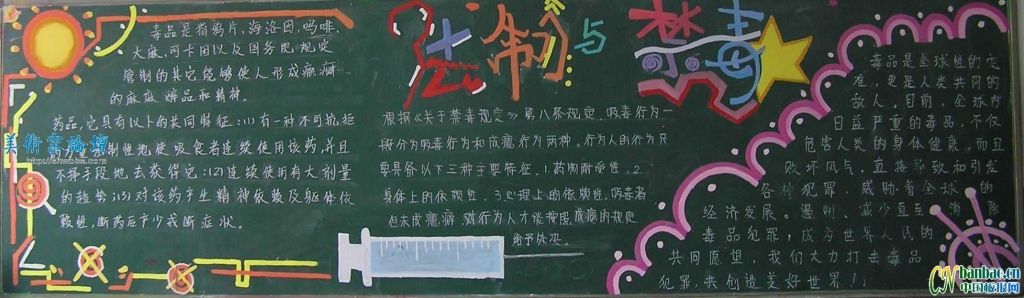 法制与禁毒
毒品是指鸦片,海洛因,吗啡,
大麻,可卡因以及国务院规定
管制的其它能够使人形成瘾癖
的麻醉 品和精神。
药品,它具有以下的共同特征:(1)有一种不可抗拒
制性地使吸食者连续使用该药,并且
不择手段地去获得它;(2)连续使用有大剂量
的趋势;(3)对该药产生精神依赖及躯体依
赖性,断药后产 戒断症状。
根据《关于禁毒规定》第八条规定,吸毒行为一
般分为吸毒行为和成瘾行为两种。行为人的行为只
要具备以下三种主要特征,1.药物耐受性,2.
身体上的依赖性,3.心理上的依赖性,吸毒者
但未成瘾癖,对行为人才能按照 的规定
给予处决。
毒品是全球性的灾
难,更是人类共同的
敌人。目前,全球内
日益严重的毒品,不仅
危害人类的身体健康,而且
败坏风气,直接导致和引发
各种犯罪,威胁着全球的
经济发展。遏制、减少直至消除
毒品犯罪,成为世界人民的
共同愿望,我们大力打击毒品
犯罪,共创造美好世界!!
美術家論壇
CN banbao.cn
中国板报网